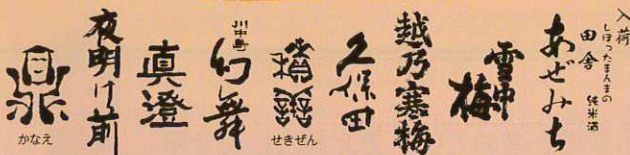 入荷
しぼったまんまの
田舎
純米酒
あぜみち
雪中梅
越乃寒梅
久保田
積善
せきぜん
川中島
幻舞
真澄
夜明け前
鼎
かなえ